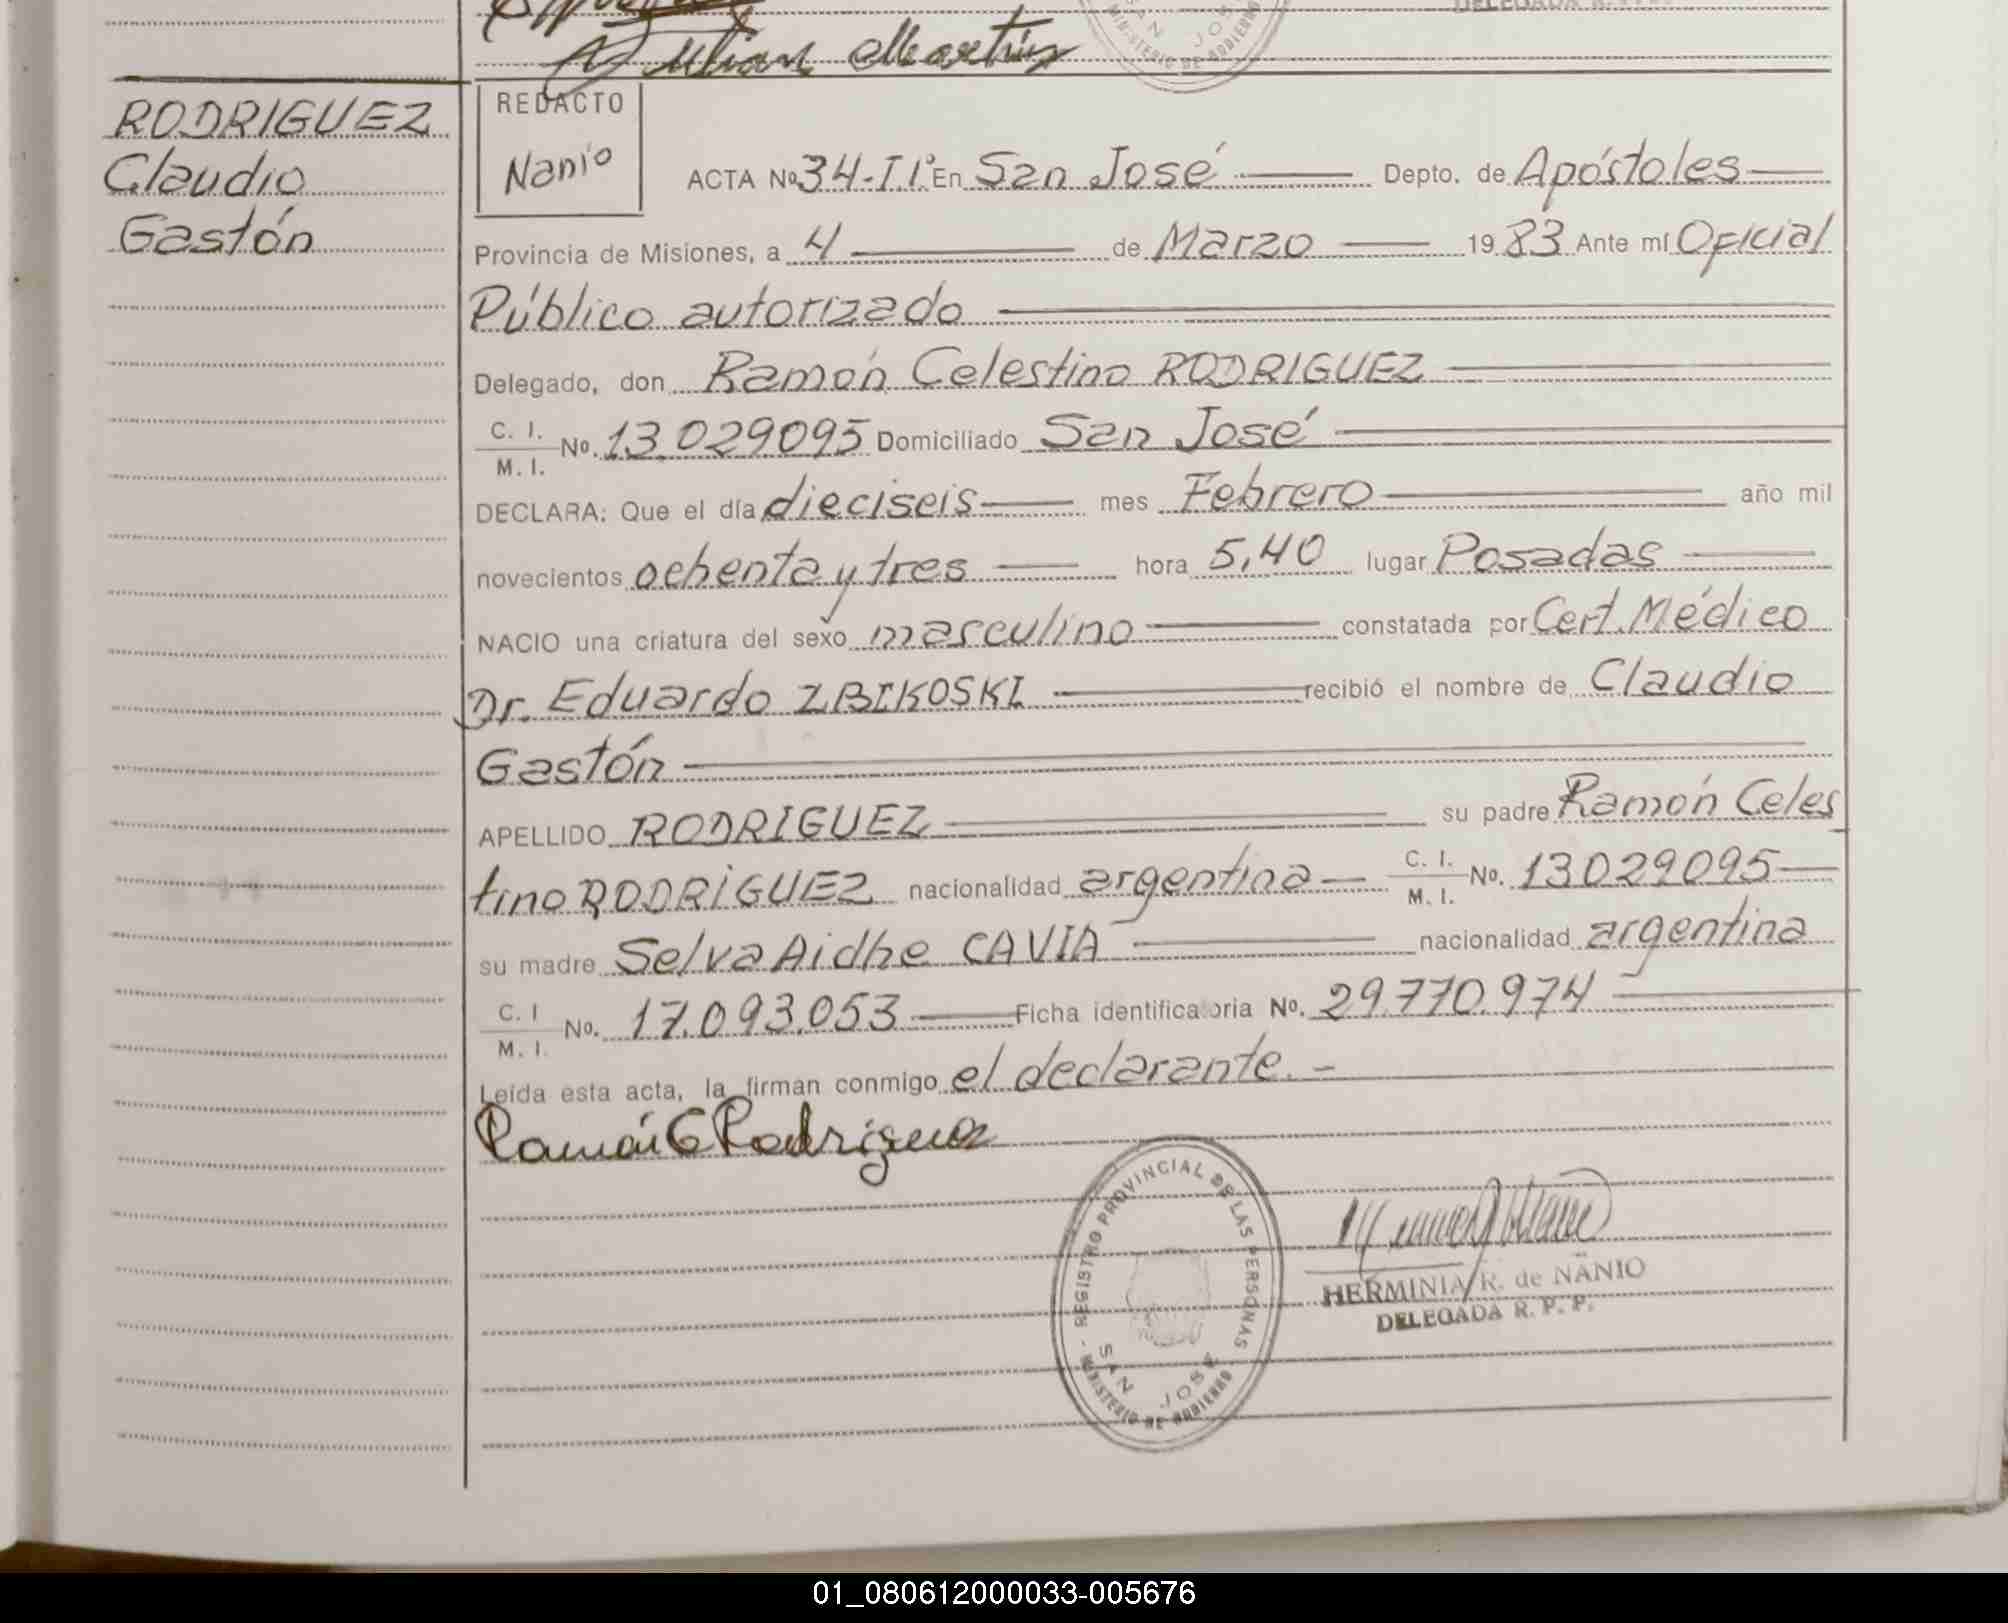 Julian Martins
SAN JOSE
MINISTERIO DE GOBIERNO
RODRIGUEZ
Claudio
Gastón
REDACTO
Nanio
ACTA Nº 34-T.Iº. En San José Depto. de Apóstoles
Provincia de Misiones, a 4 de Marzo 1983 Ante mí Oficial
Público autorizado
Delegado, don Ramón Celestino RODRIGUEZ
C. I.
M. I. No. 13.029095 Domiciliado San José
DECLARA: Que el día dieciseis mes Febrero año mil
novecientos ochenta y tres hora 5,40 lugar Posadas
NACIO una criatura del sexo masculino constatada por Cert. Médico
Dr. Eduardo ZBIKOSKI recibió el nombre de Claudio
Gastón
APELLIDO RODRIGUEZ su padre Ramón Celes
tino RODRIGUEZ nacionalidad argentina C. I. M. I. No. 13029095
su madre Selva Aidhe CAVIA nacionalidad argentina
C. I
M. I. No. 17.093.053 Ficha identificatoria No. 29.770.974
Leída esta acta, la firman conmigo el declarante.-
Ramón C Rodriguez
REGISTRO PROVINCIAL DE LAS PERSONAS
SAN JOSE
MINISTERIO DE GOBIERNO
HERMINIA R. de NANIO
DELEGADA R. P. P.
01_080612000033-005676